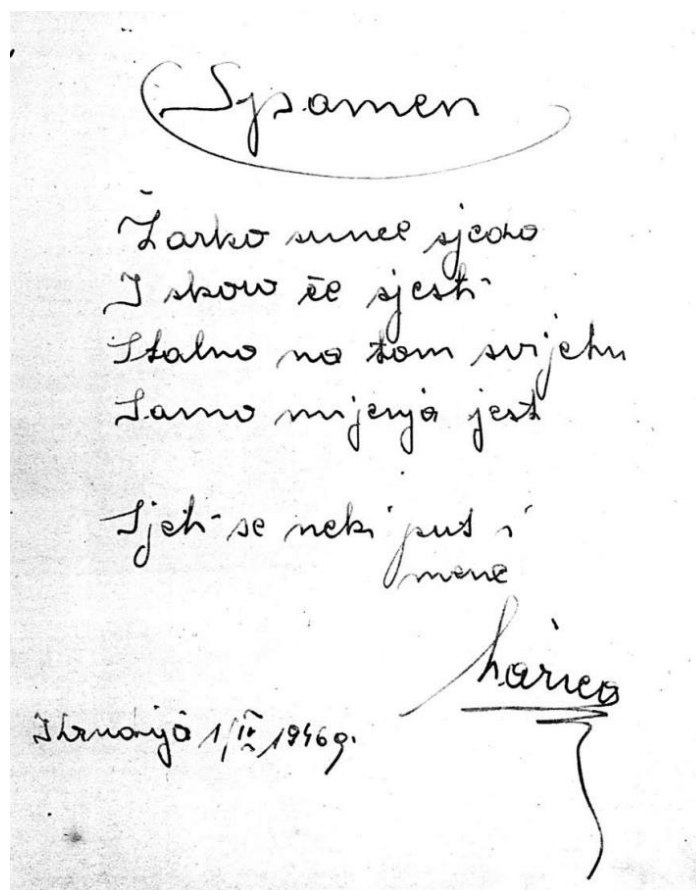 Spomen
Žarko sunce sjeda
I skoro će sjesti
Stalno na tom svijetu
Samo mijenja jest
Sjeti se neki put i
mene
Krndija 1/IV 1946 g.